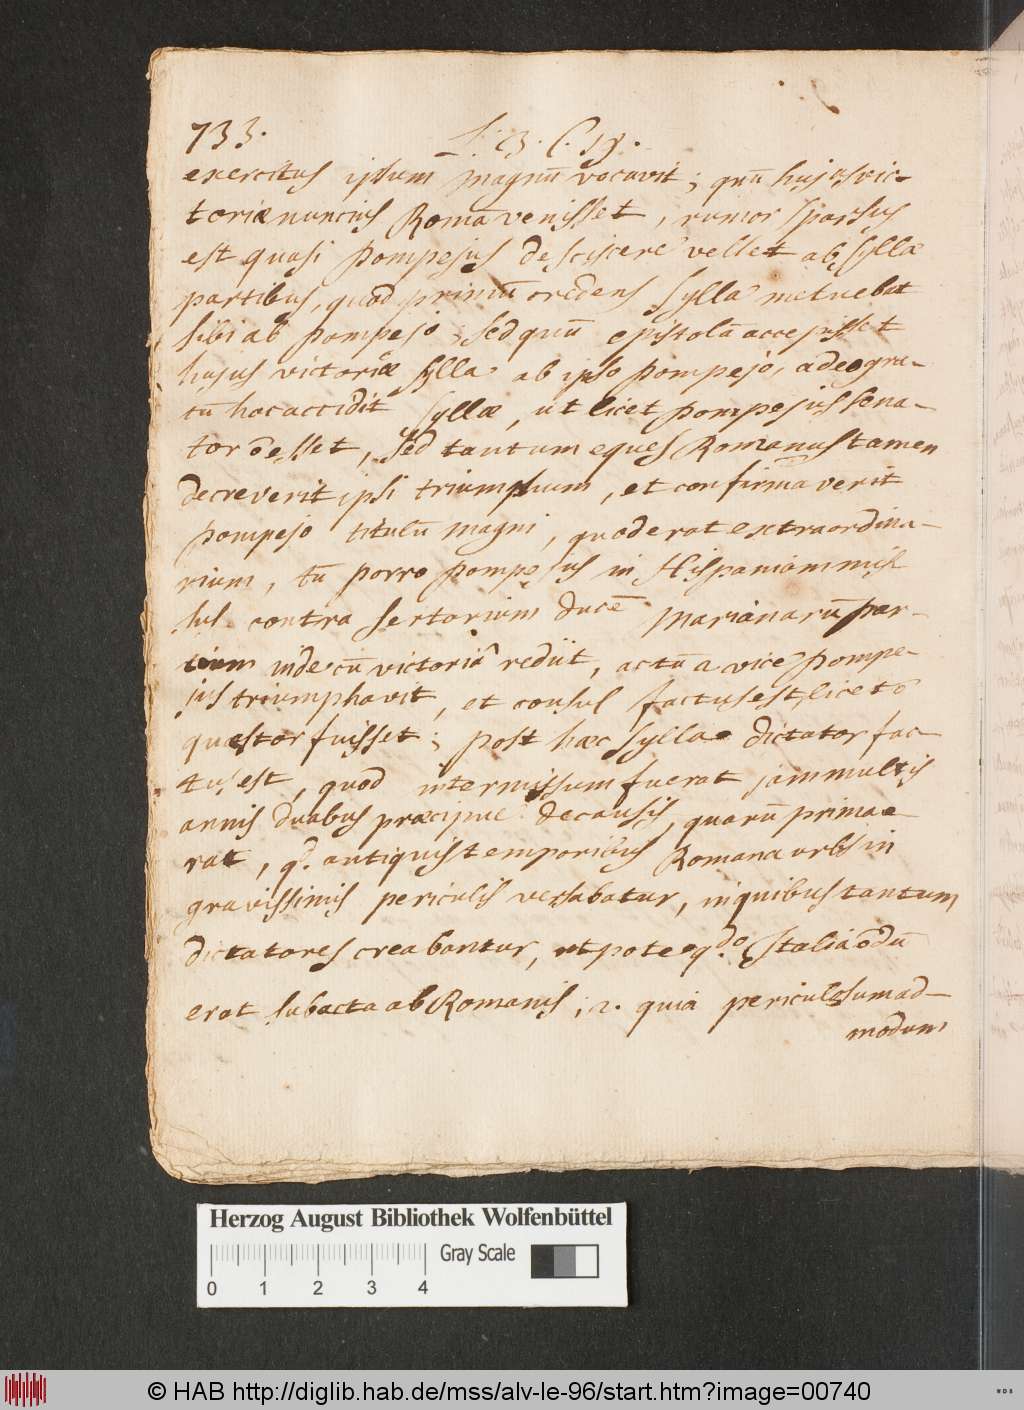 733. L. 3. C. 18.
exercitus ipsum magnū vocavit; quū hujus vic-
toriæ nuncius Romā venisset, rumor sparsus
est quasi Pompejus desciscere vellet ab Syllæ
partibus, quod primū credens Sylla metuebat
sibi ab Pompejo; sed quū epistolā accepisset
hujus victoriæ Sylla ab ipso Pompejo, adeo gra-
tū hoc accidit Syllæ, ut licet Pompejus sena-
tor ō esset, sed tantum eques Romanus tamen
decreverit ipsi triumphum, et confirmaverit
Pompejo titulū magni, quod erat extraordina-
rium, tū porro Pompejus in Hispaniam mis
sus contra Sertorium ducē Marianarū par-
tium inde cū victoriâ rediit, actū a vice Pompe-
jus triumphavit, et consul factus est, licet ō
quæstor fuisset; post hæc Sylla dictator fac-
tus est, quod intermissum fuerat jam multis
annis duabus præcipue de causis, quarū prima e
rat, qd. antiquis temporibus Romana urbs in
gravissimis periculis versabatur, in quibus tantum
dictatores creabantur, utpote qdo Italia ōdū
erat subacta ab Romanis; 2. quia periculosum ad-
modum
Herzog August Bibliothek Wolfenbüttel
Gray Scale
0 1 2 3 4
© HAB http://diglib.hab.de/mss/alv-le-96/start.htm?image=00740